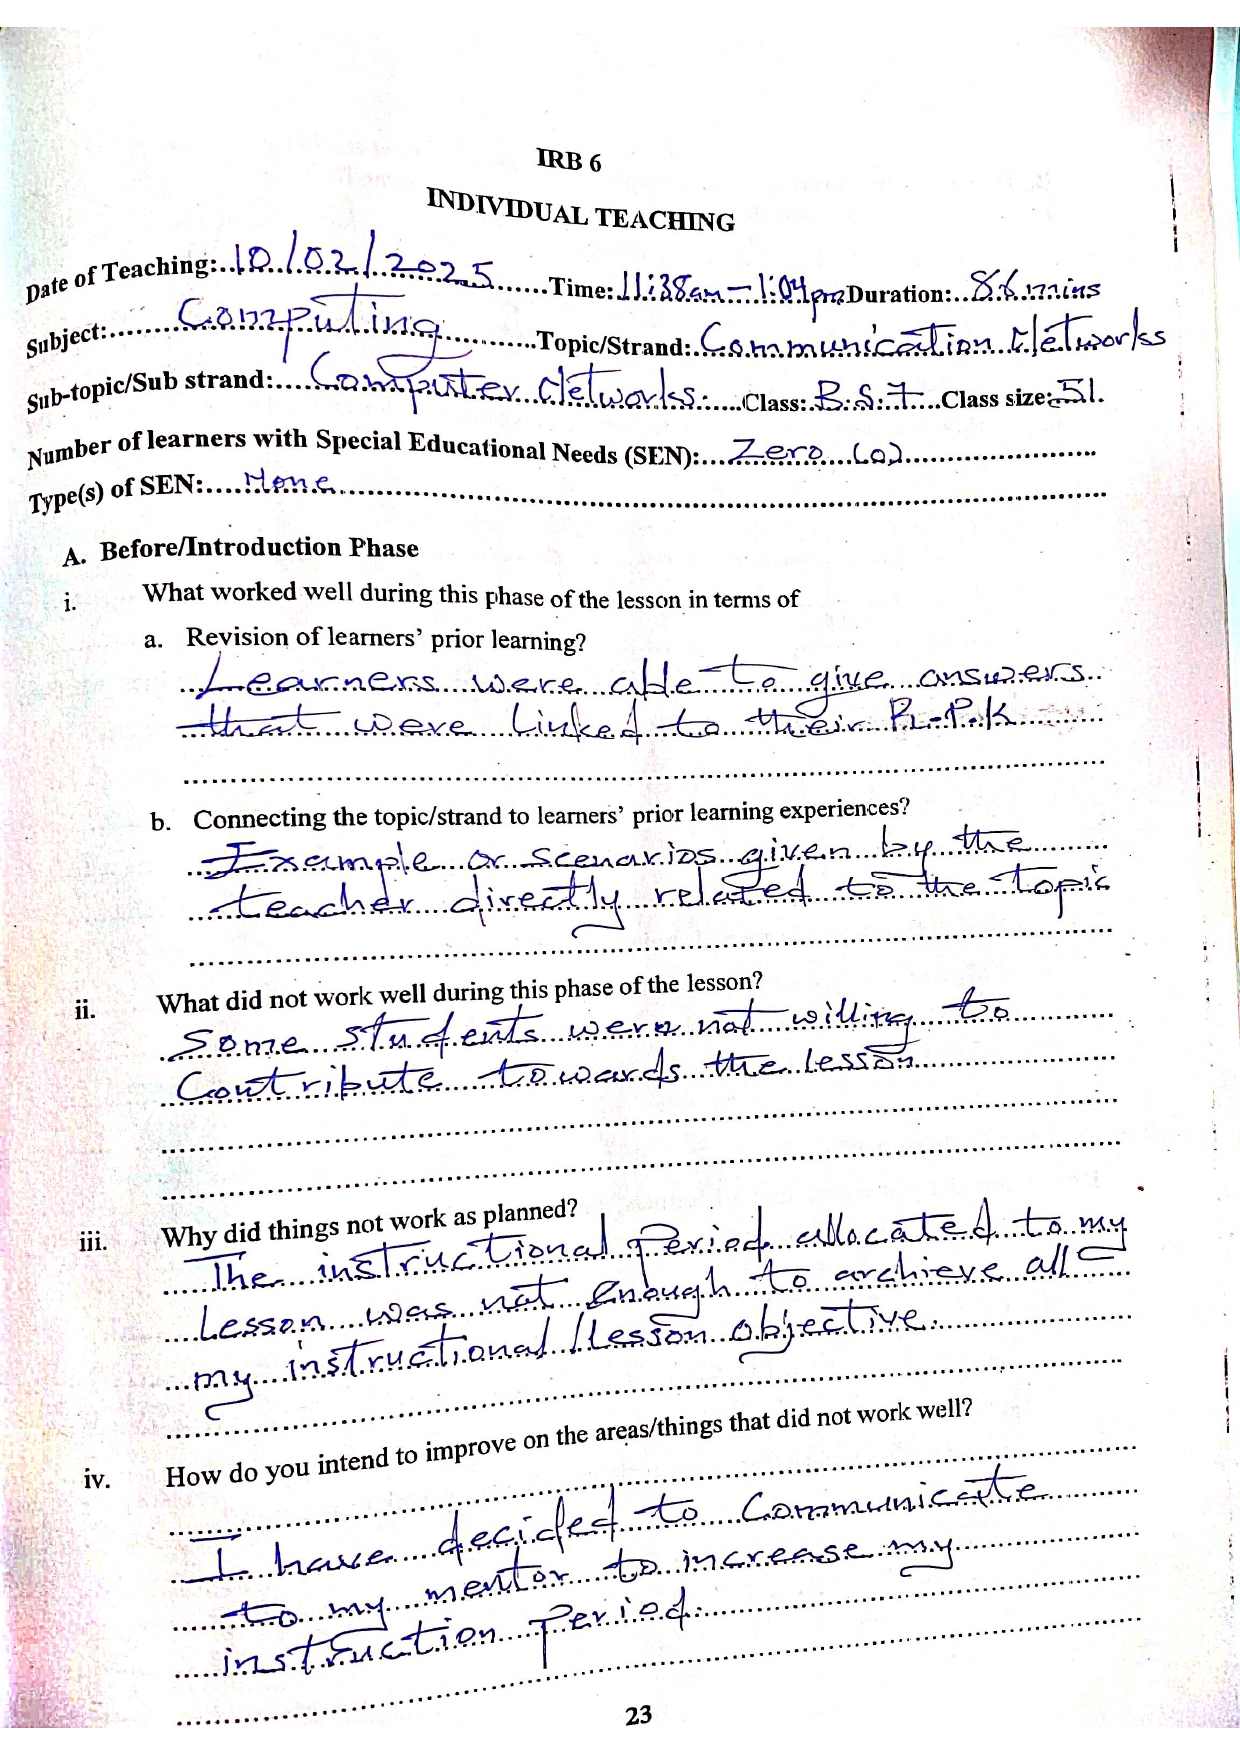 IRB 6
INDIVIDUAL TEACHING
Date of Teaching:..10/02/2025......Time:11:38am-1:04pm Duration:..86mins
Subject:.......Computing..........Topic/Strand:.Communication Networks
Sub-topic/Sub strand:....Computer Networks.....Class:.B.S.7...Class size:.51.
Number of learners with Special Educational Needs (SEN):...Zero (0)
Type(s) of SEN:....None
A. Before/Introduction Phase
i. What worked well during this phase of the lesson in terms of
a. Revision of learners' prior learning?
Learners were able to give answers
that were linked to their R.P.K
b. Connecting the topic/strand to learners' prior learning experiences?
Example or scenarios given by the
teacher directly related to the topic
ii. What did not work well during this phase of the lesson?
Some students were not willing to
Contribute towards the lesson
iii. Why did things not work as planned?
The instructional Period allocated to my
Lesson was not enough to archieve all
my instructional/lesson objective.
iv. How do you intend to improve on the areas/things that did not work well?
I have decided to Communicate
to my mentor to increase my
instruction Period.
23